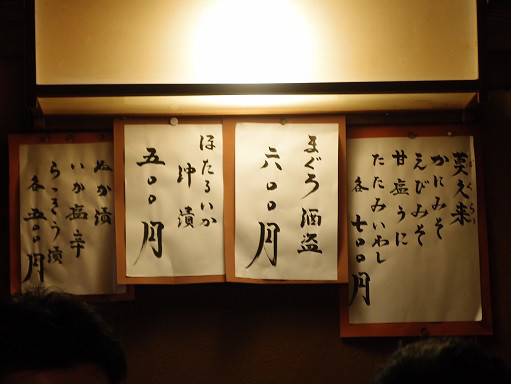 莫久来
かにみそ
えびみそ
甘塩うに
たたみいわし
各 七〇〇円
まぐろ酒盗
六〇〇円
ほたるいか
沖漬
五〇〇円
ぬか漬
いか塩辛
らっきう漬
各 五〇〇円